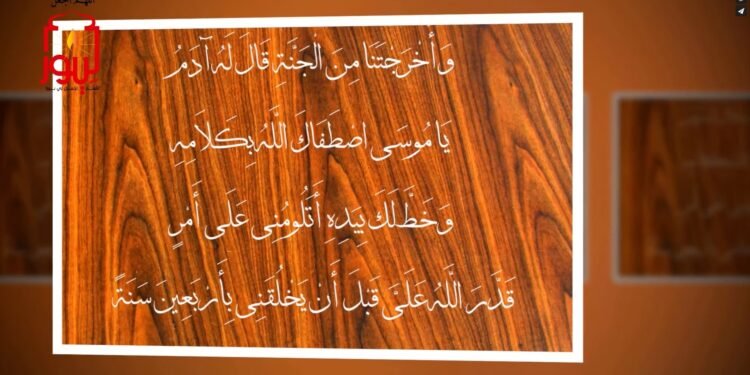 اللهم اجعل
وَأَخْرَجْتَنَا مِنَ الْجَنَّةِ قَالَ لَهُ آدَمُ
يَا مُوسَى اصْطَفَاكَ اللَّهُ بِكَلَامِهِ
وَخَطَّ لَكَ بِيَدِهِ أَتَلُومُنِى عَلَى أَمْرٍ
قَدَّرَ اللَّهُ عَلَىَّ قَبْلَ أَنْ يَخْلُقَنِى بِأَرْبَعِينَ سَنَةً